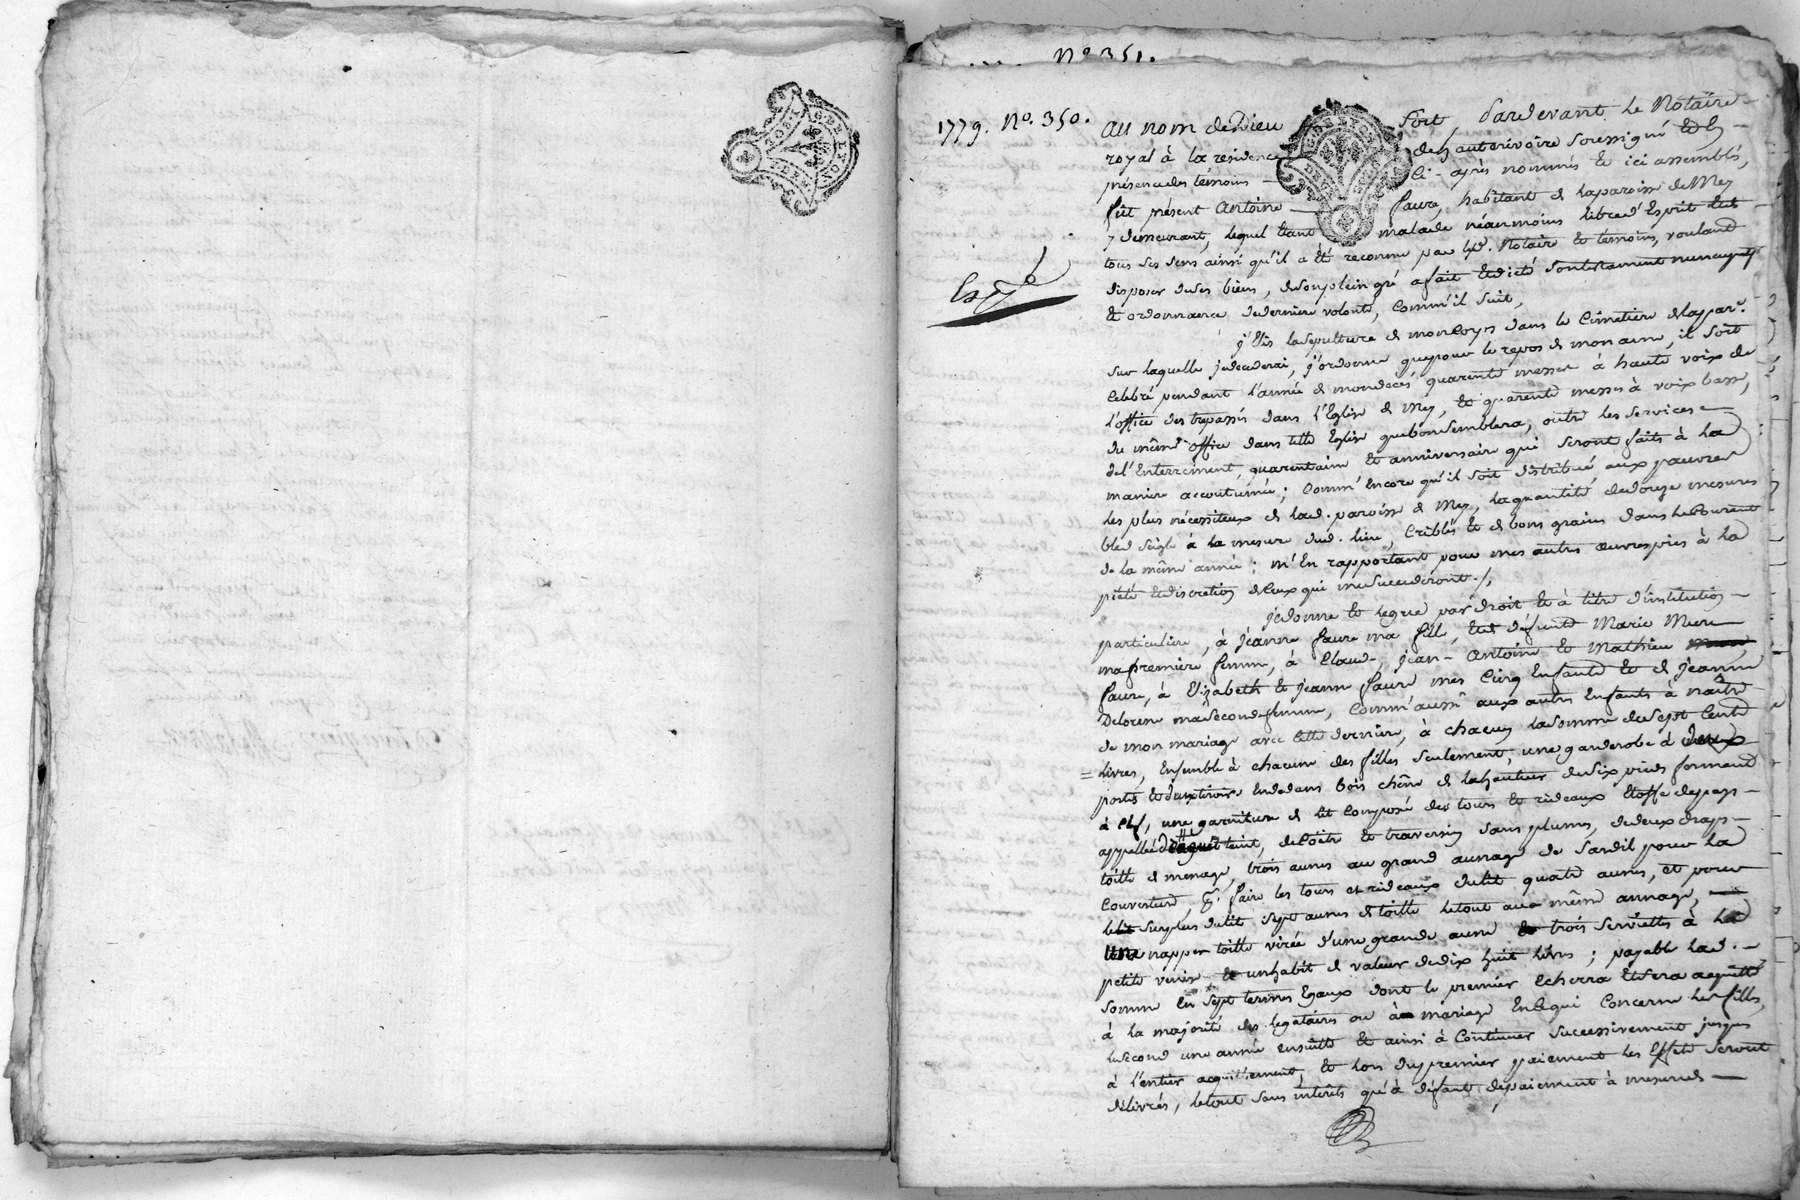 N° 351.
1779. N°. 350.
au nom de Dieu soit Pardevant le Notaire
royal à la résidence de hauterivoire soussigné et en
présence des témoins ci-après nommés et ici assemblés,
fût présent Antoine faure, habitant de la paroisse de Mey
y demeurant, lequel étant malade néanmoins libre d'Esprit et de
tous ses sens ainsi qu'il a été reconnu par led. Notaire et témoins, voulant
disposer de ses biens, de son plein gré a fait et dicté son testament nuncupatif
et ordonnance de dernière volonté, comm'il suit,
Exp.é
j'Elis la sépulture de mon Corps dans le Cimetière de la par.e
sur laquelle je decederai, j'ordonne que pour le repos de mon ame, il soit
Celebré pendant l'année de mon decès quarente messes à haute voix de
l'office des trepassés dans l'Eglise de Mey, et quarente messes à voix basse,
du même office dans telle Eglise que bon semblera, outre les services
de l'Enterrement, quarentaine et anniversaire qui seront faits à la
maniere accoutumée; Comm'Encore qu'il soit distribué aux pauvres
les plus nécessiteux de lad. paroisse de Mey, la quantité de douze mesures
bled seigle à la mesure dud. lieu, Criblés et de bons grains dans le Courent
de la même année; m'En rapportant pour mes autres œuvres pies à la
piété et discretion de Ceux qui me succederont./.
je donne et legue par droit et à titre d'institution
particuliere, à jeanne faure ma fille, et de défunte Marie Mure
ma premiere femme, à Claude, jean-Antoine et Mathieu
faure, à Elizabeth et jeanne faure mes Cinq Enfants et de jeanne
Delorme ma seconde femme, Comm'aussi aux autres Enfants à naître
de mon mariage avec Cette derniere, à chacun la somme de sept Cents
livres, Ensemble à chacune des filles seulement, une garderobe à deux
portes et deux tiroirs En dedans bois chêne de la hauteur de six pieds fermant
à Clef, une garniture de lit Composé de tours et rideaux Etoffe de pays
appellée teint, de Coêtre et traversin sans plumes, de deux draps
toille de menage, trois aunes au grand aunage de Sardil pour la
Couverture, p.r faire les tours et rideaux du lit quatre aunes, et pour
le surplus du lit, sept aunes de toille le tout au même aunage,
une nappe toille virée d'une grande aune trois serviettes à la
petite venise et un habit de valeur de dix huit livres; payable lad.
somme En sept termes Egaux dont le premier Echerra et sera acquitté
à la majorité des legataires ou à mariage En Ce qui Concerne les filles,
le second une année ensuitte et ainsi à Continuer successivement jusques
à l'entier acquittement, et lors du premier paiement les Effets seront
délivrés, le tout sans intérêts qu'à défaut de paiement à mesure